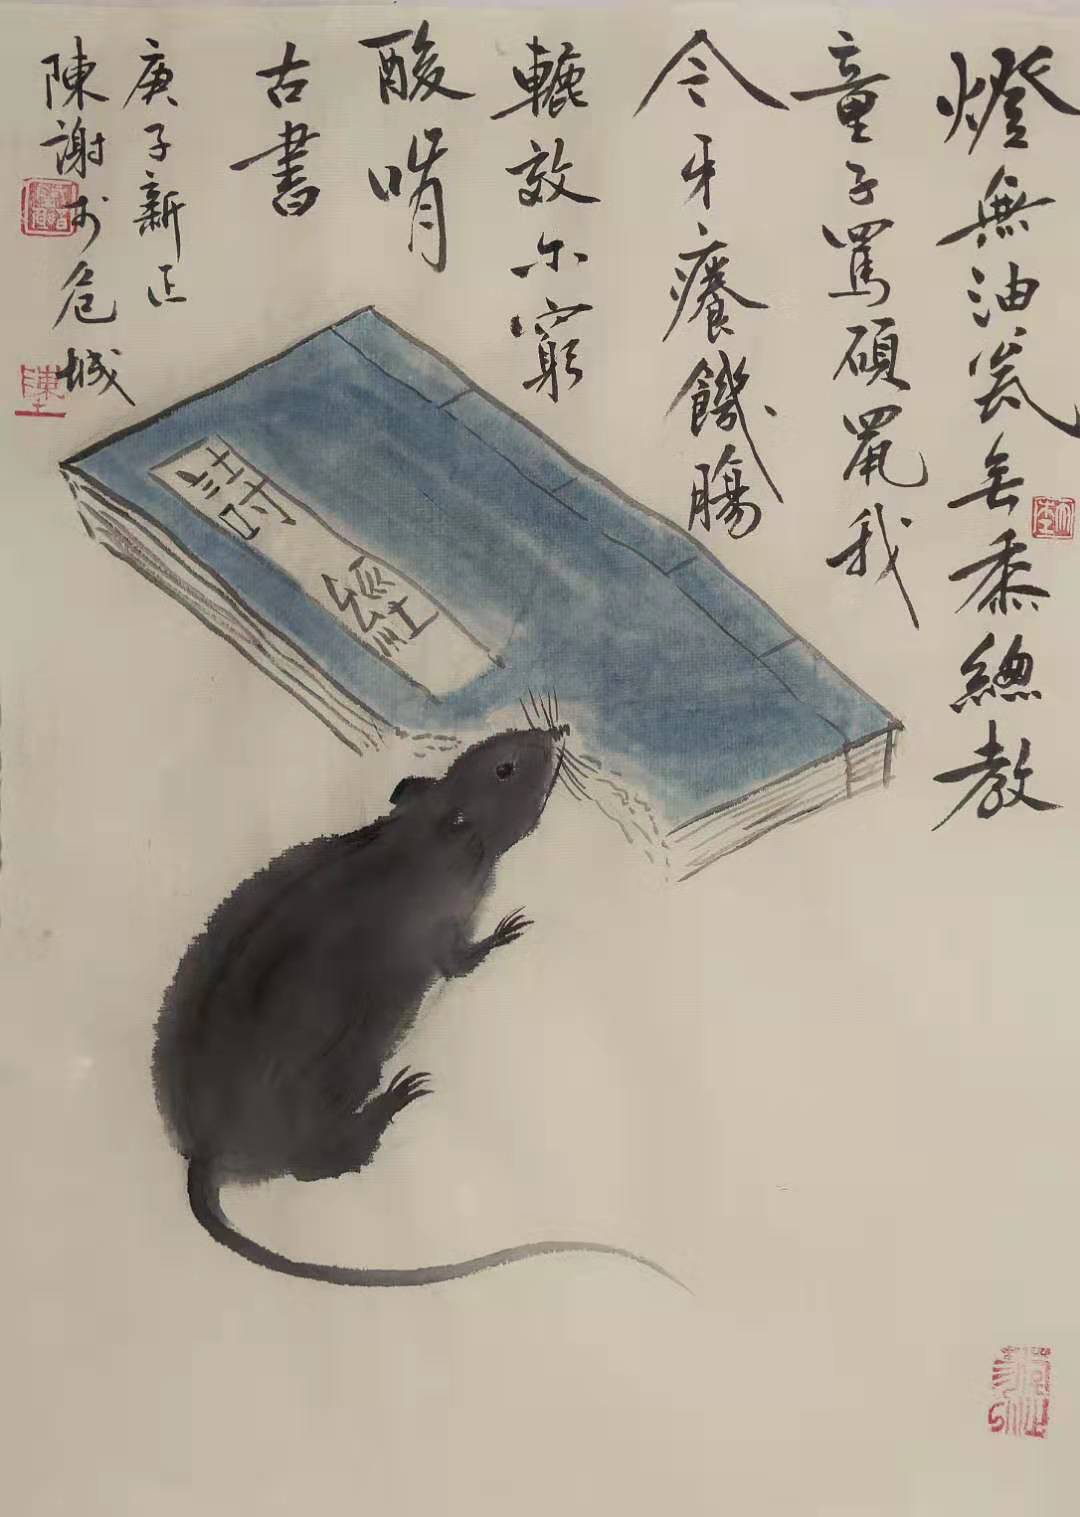 燈無油瓮無黍總教
童子罵碩鼠我
今牙癢饑腸
轆效尔窮
酸啃
古書
庚子新正
陳謝於危城
詩經